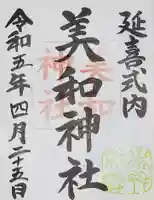 延喜式内
美和神社
令和五年四月二十五日
美和
神社